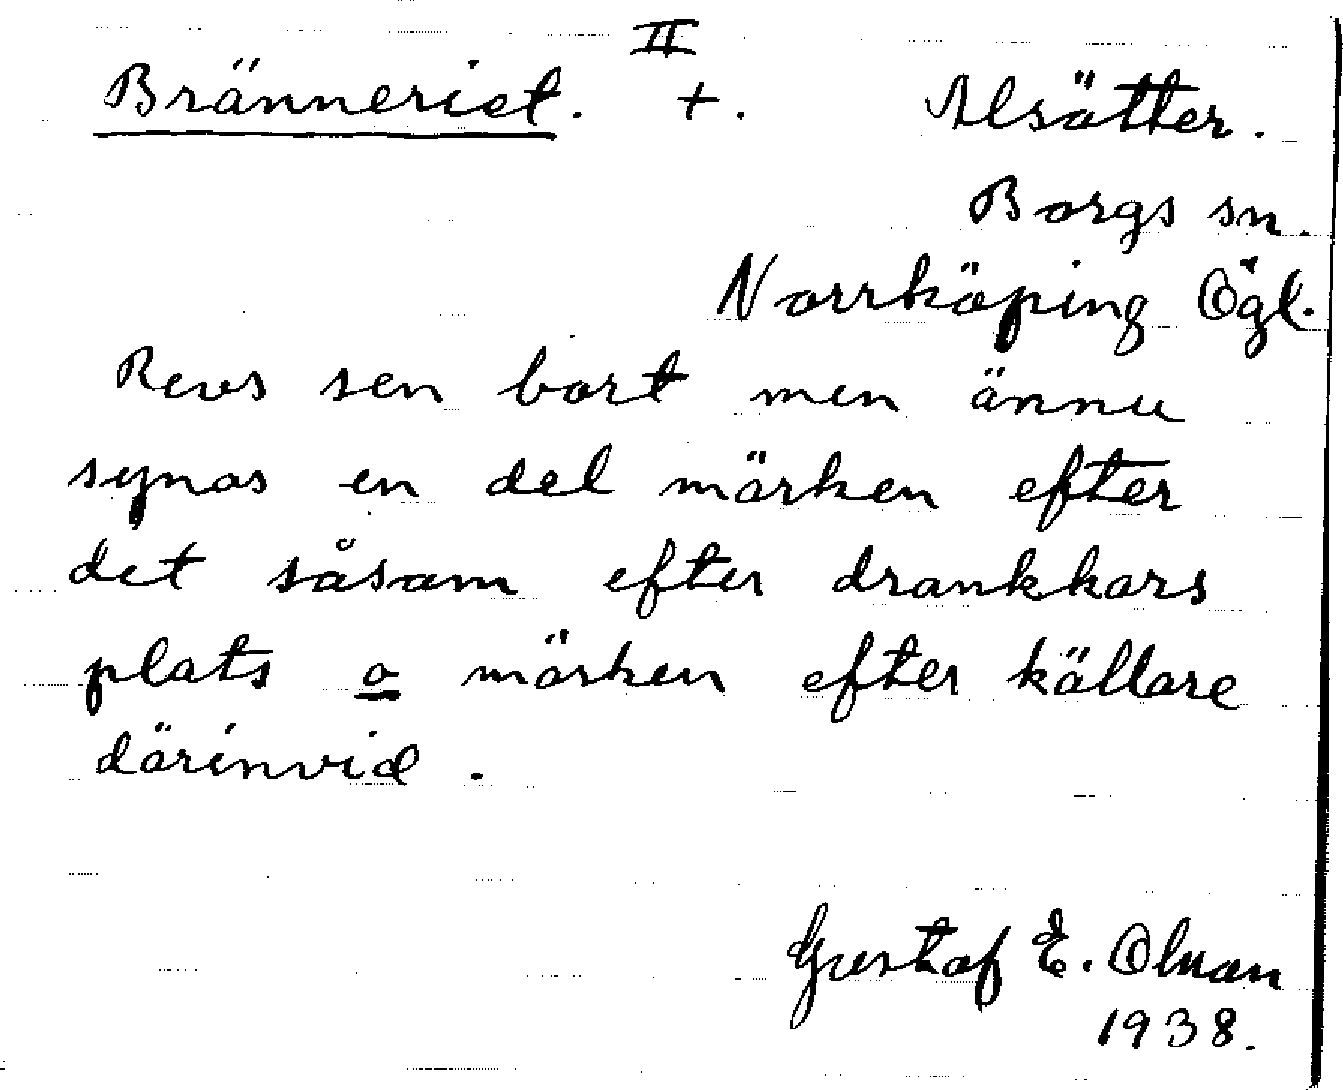 II
Bränneriet. +. Alsätter.
Borgs sn.
Norrköping Ögl.
Revs sen bort men ännu
synas en del märken efter
det såsom efter drankkars
plats o märken efter källare
därinvid.
Gustaf E. Olsson
1938.